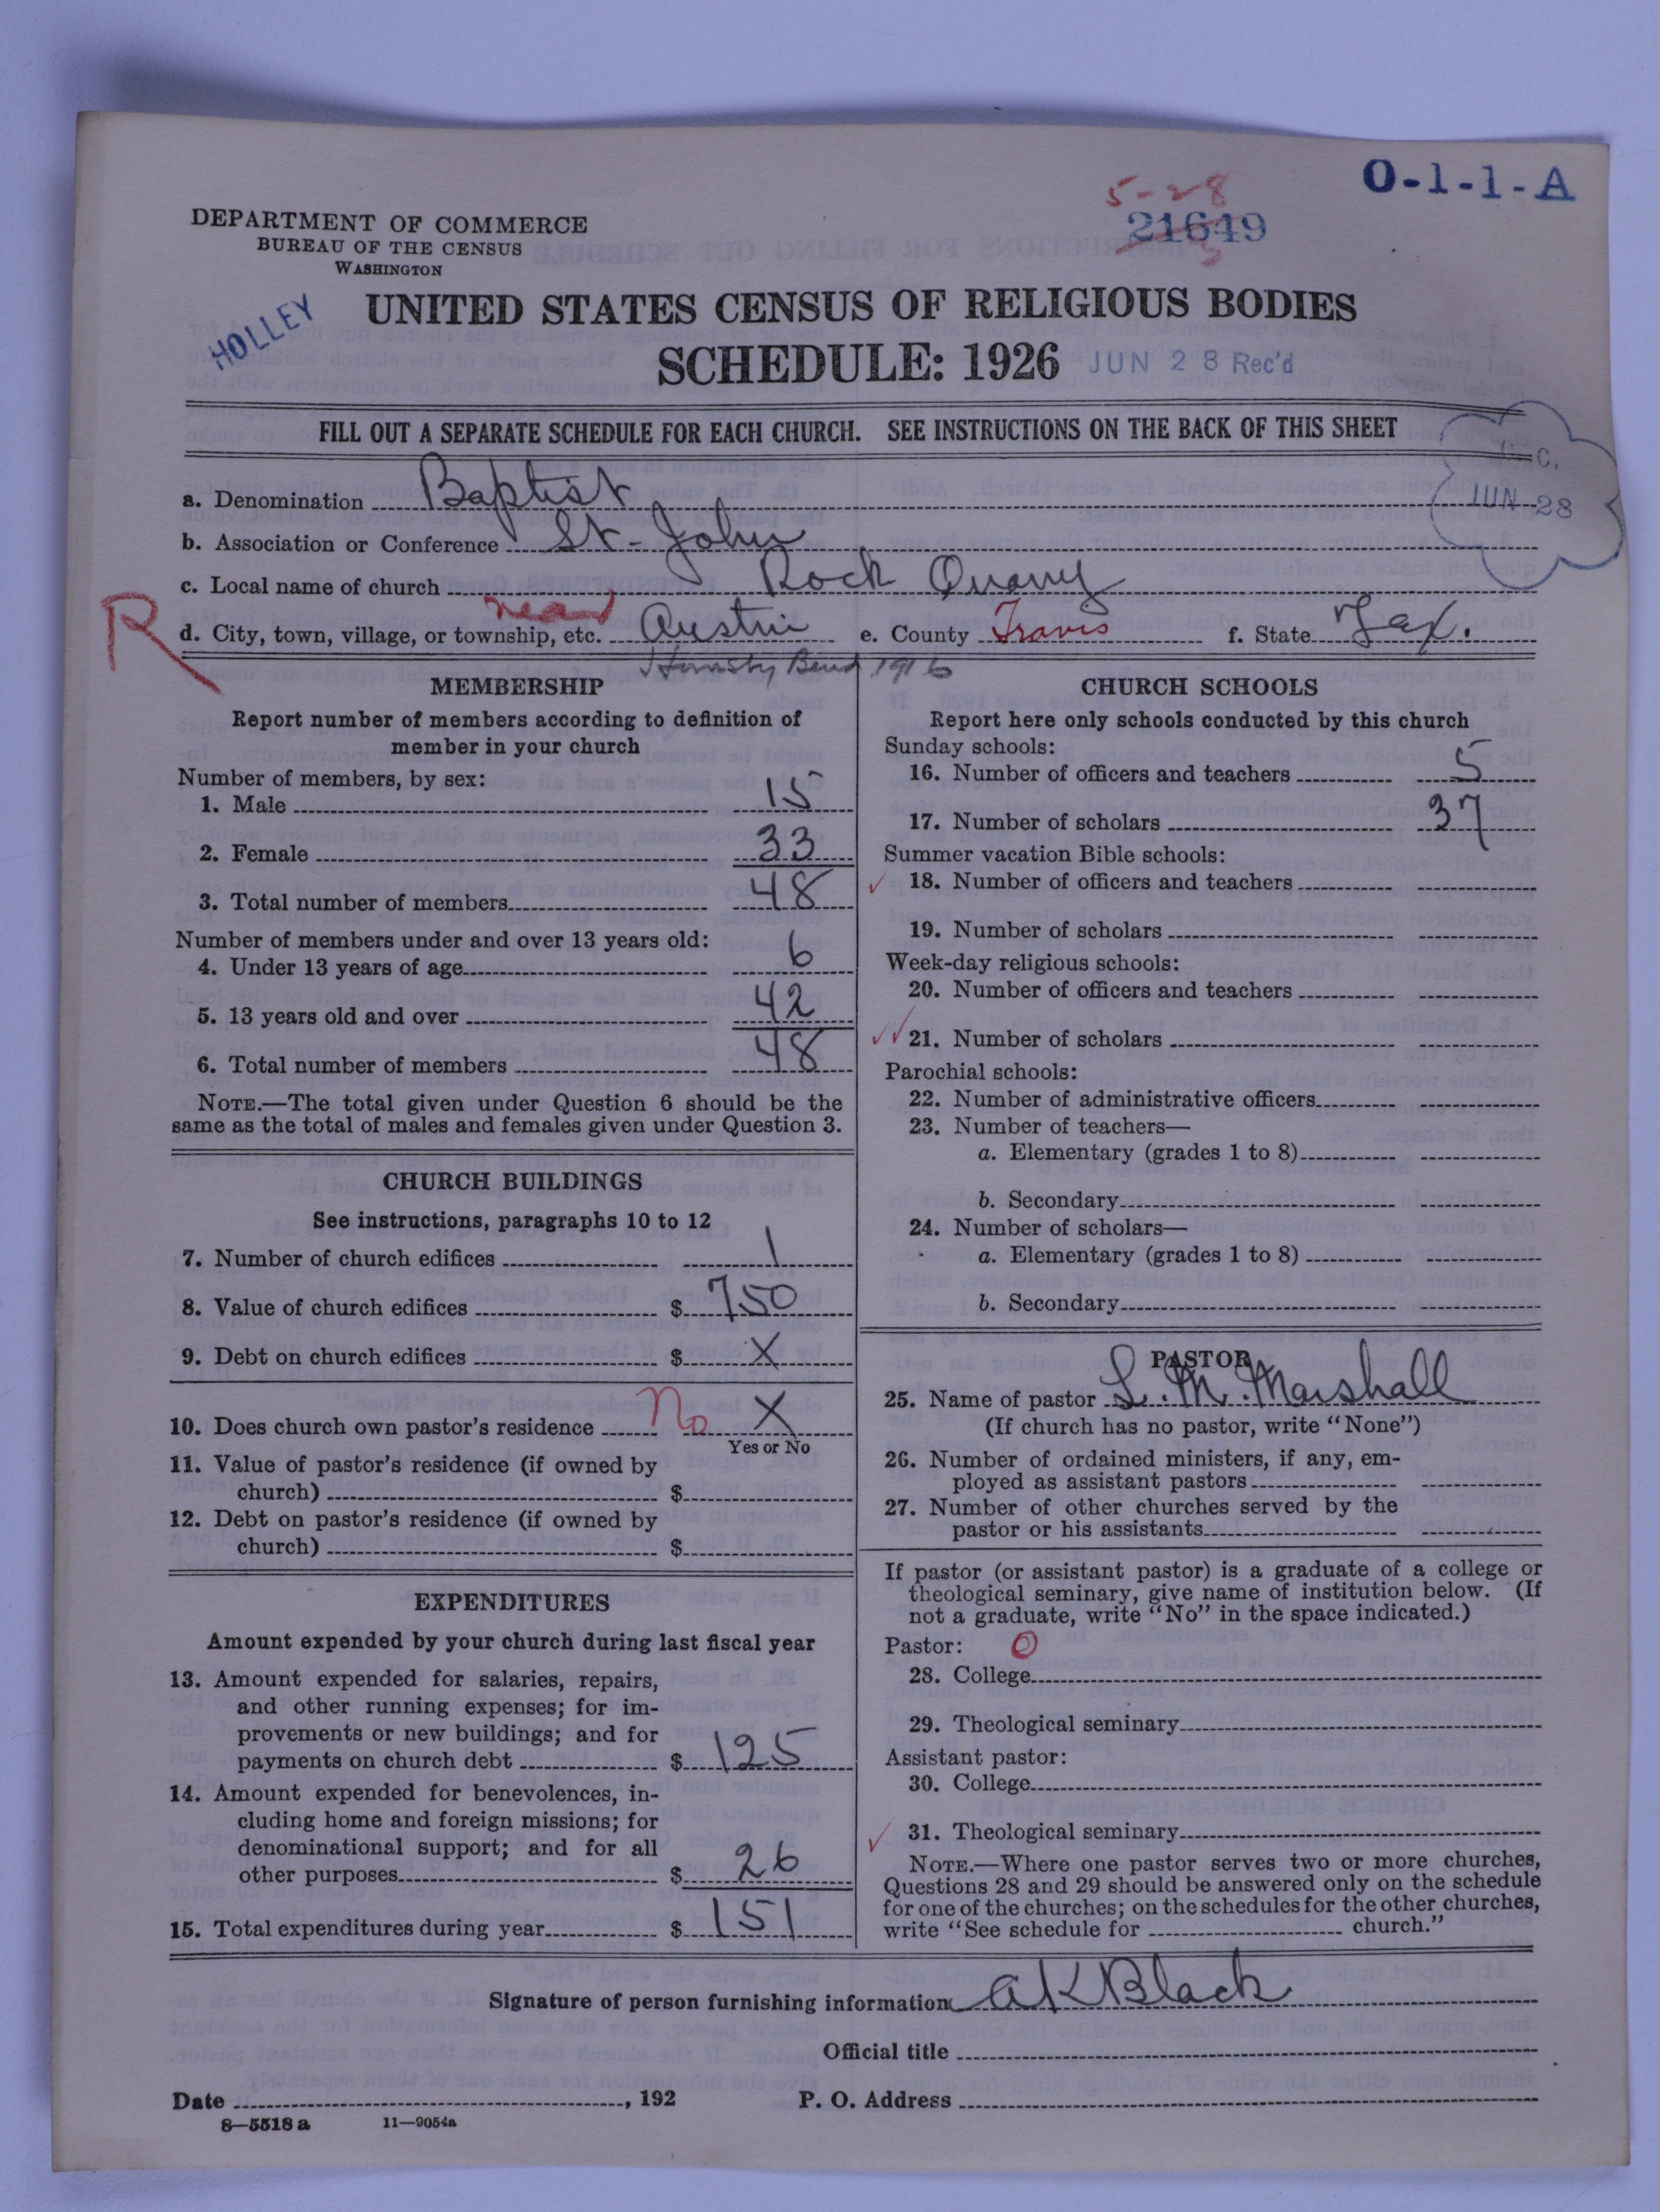 O-1-1-A
5-28
21649
DEPARTMENT OF COMMERCE
BUREAU OF THE CENSUS
WASHINGTON
HOLLEY
UNITED STATES CENSUS OF RELIGIOUS BODIES
SCHEDULE: 1926 JUN 28 Rec'd
FILL OUT A SEPARATE SCHEDULE FOR EACH CHURCH. SEE INSTRUCTIONS ON THE BACK OF THIS SHEET
C.
JUN 28
a. Denomination Baptist
b. Association or Conference St-John
c. Local name of church Rock Quarry
R
d. City, town, village, or township, etc. near Austin e. County Travis f. State Tex.
Hornsby Bend 1916
MEMBERSHIP
Report number of members according to definition of
member in your church
Number of members, by sex:
1. Male 15
2. Female 33
3. Total number of members 48
Number of members under and over 13 years old:
4. Under 13 years of age 6
5. 13 years old and over 42
6. Total number of members 48
NOTE.—The total given under Question 6 should be the
same as the total of males and females given under Question 3.
CHURCH BUILDINGS
See instructions, paragraphs 10 to 12
7. Number of church edifices 1
8. Value of church edifices $ 750
9. Debt on church edifices $ X
10. Does church own pastor's residence No X
Yes or No
11. Value of pastor's residence (if owned by
church) $
12. Debt on pastor's residence (if owned by
church) $
EXPENDITURES
Amount expended by your church during last fiscal year
13. Amount expended for salaries, repairs,
and other running expenses; for im-
provements or new buildings; and for
payments on church debt $ 125
14. Amount expended for benevolences, in-
cluding home and foreign missions; for
denominational support; and for all
other purposes $ 26
15. Total expenditures during year $ 151
CHURCH SCHOOLS
Report here only schools conducted by this church
Sunday schools:
16. Number of officers and teachers 5
17. Number of scholars 37
Summer vacation Bible schools:
18. Number of officers and teachers
19. Number of scholars
Week-day religious schools:
20. Number of officers and teachers
21. Number of scholars
Parochial schools:
22. Number of administrative officers
23. Number of teachers—
a. Elementary (grades 1 to 8)
b. Secondary
24. Number of scholars—
a. Elementary (grades 1 to 8)
b. Secondary
PASTOR
25. Name of pastor L. M. Marshall
(If church has no pastor, write "None")
26. Number of ordained ministers, if any, em-
ployed as assistant pastors
27. Number of other churches served by the
pastor or his assistants
If pastor (or assistant pastor) is a graduate of a college or
theological seminary, give name of institution below. (If
not a graduate, write "No" in the space indicated.)
Pastor: 0
28. College
29. Theological seminary
Assistant pastor:
30. College
31. Theological seminary
NOTE.—Where one pastor serves two or more churches,
Questions 28 and 29 should be answered only on the schedule
for one of the churches; on the schedules for the other churches,
write "See schedule for church."
Signature of person furnishing information A K Black
Official title
Date , 192 P. O. Address
8—5518 a 11—9054a